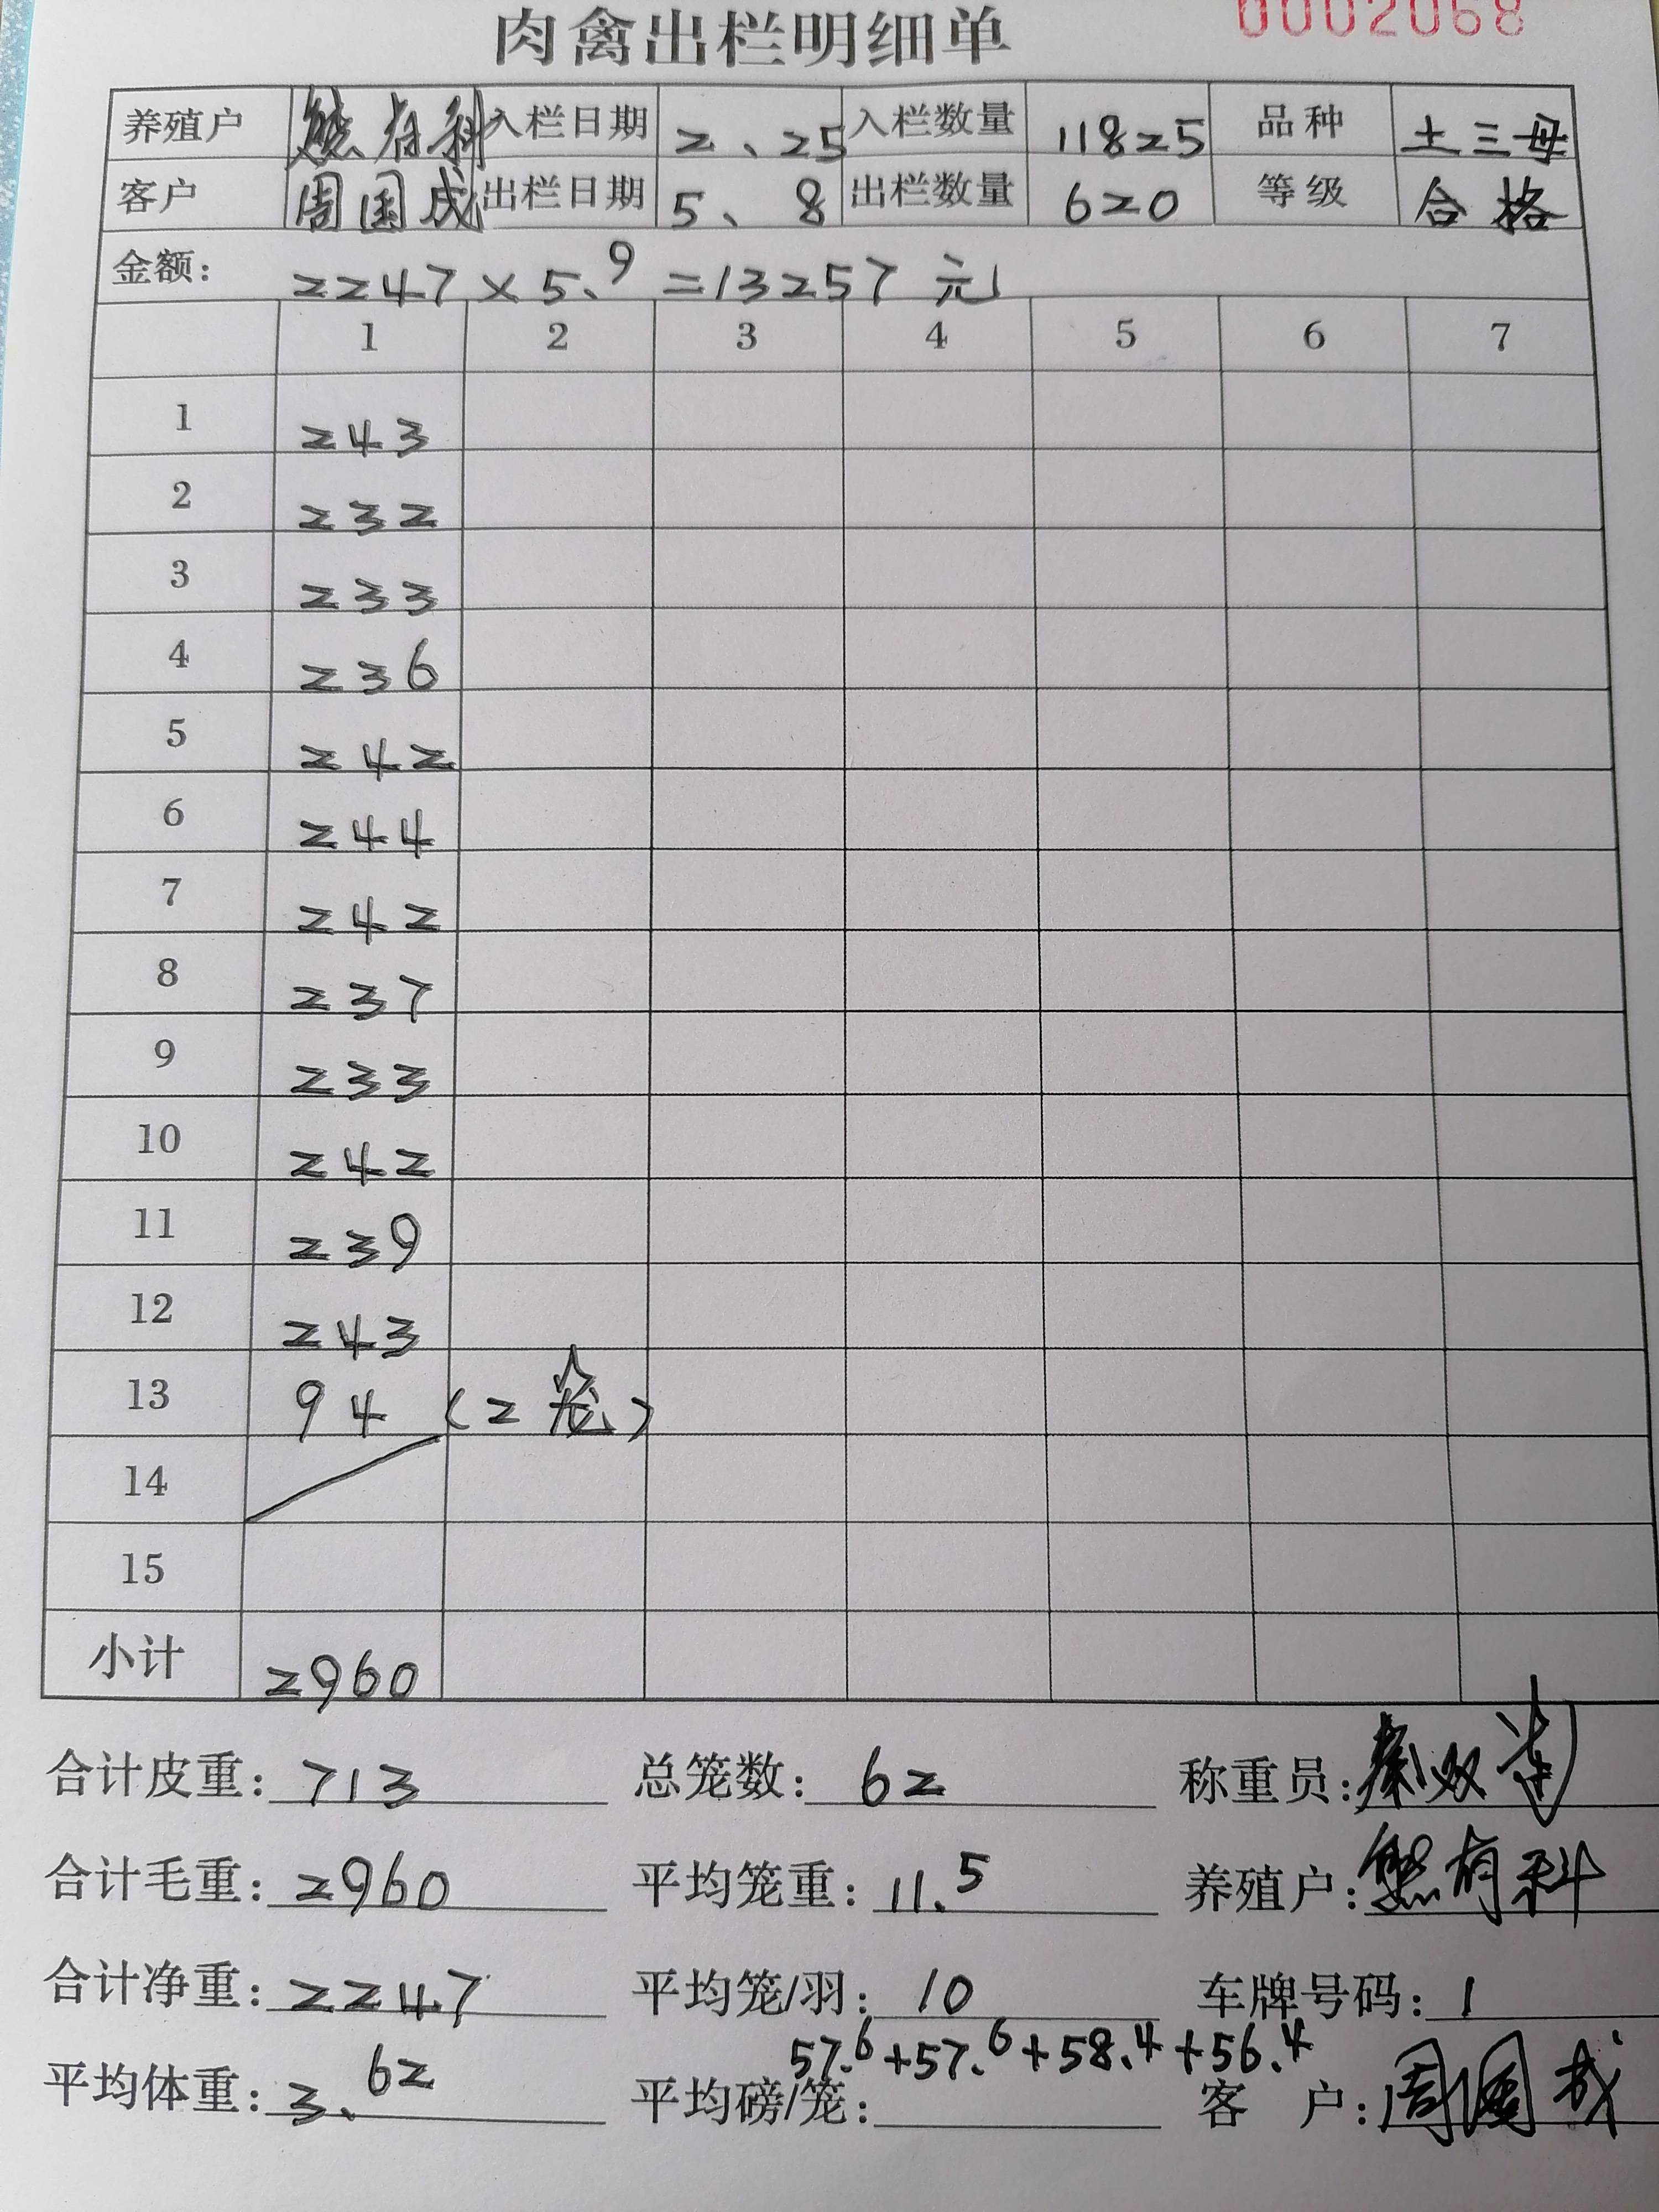 0002068
肉禽出栏明细单
养殖户 熊有科 入栏日期 2、25 入栏数量 11825 品种 土三母
客户 周国成 出栏日期 5、8 出栏数量 620 等级 合格
金额: 2247×5.9=13257元
1 2 3 4 5 6 7
1 243
2 232
3 233
4 236
5 242
6 244
7 242
8 237
9 233
10 242
11 239
12 243
13 94 (2笼)
14
15
小计 2960
合计皮重: 713 总笼数: 62 称重员: 秦双莲
合计毛重: 2960 平均笼重: 11.5 养殖户: 熊有科
合计净重: 2247 平均笼/羽: 10 车牌号码: 1
57.6+57.6+58.4+56.4
平均体重: 3.62 平均磅/笼: 客户: 周国成